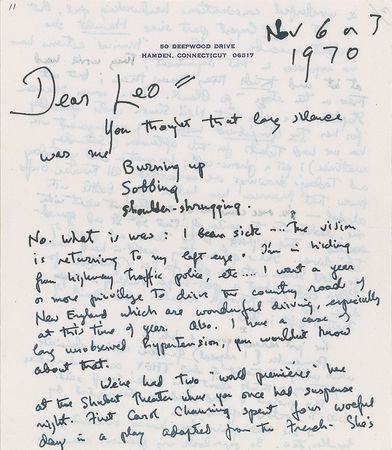 11
50 DEEPWOOD DRIVE
HAMDEN, CONNECTICUT 06517
Nov 6 or 7
1970
Dear Leo
You thought that long silence
was me
Burning up
Sobbing
shoulder-shrugging.
No. What is was: I been sick .... The vision
is returning to my left eye. I'm in hiding
from highway traffic police, etc.... I want a year
or more privilege to drive the country roads of
New England which are wonderful driving, especially
at this time of year. Also. I have a case of
long unobserved hypertension, you wouldn't know
about that.
We've had two "world premières" here
at the Shubert Theater where you once had suspense
night. First Carol Channing spent four woeful
days in a play adapted from the French. She's